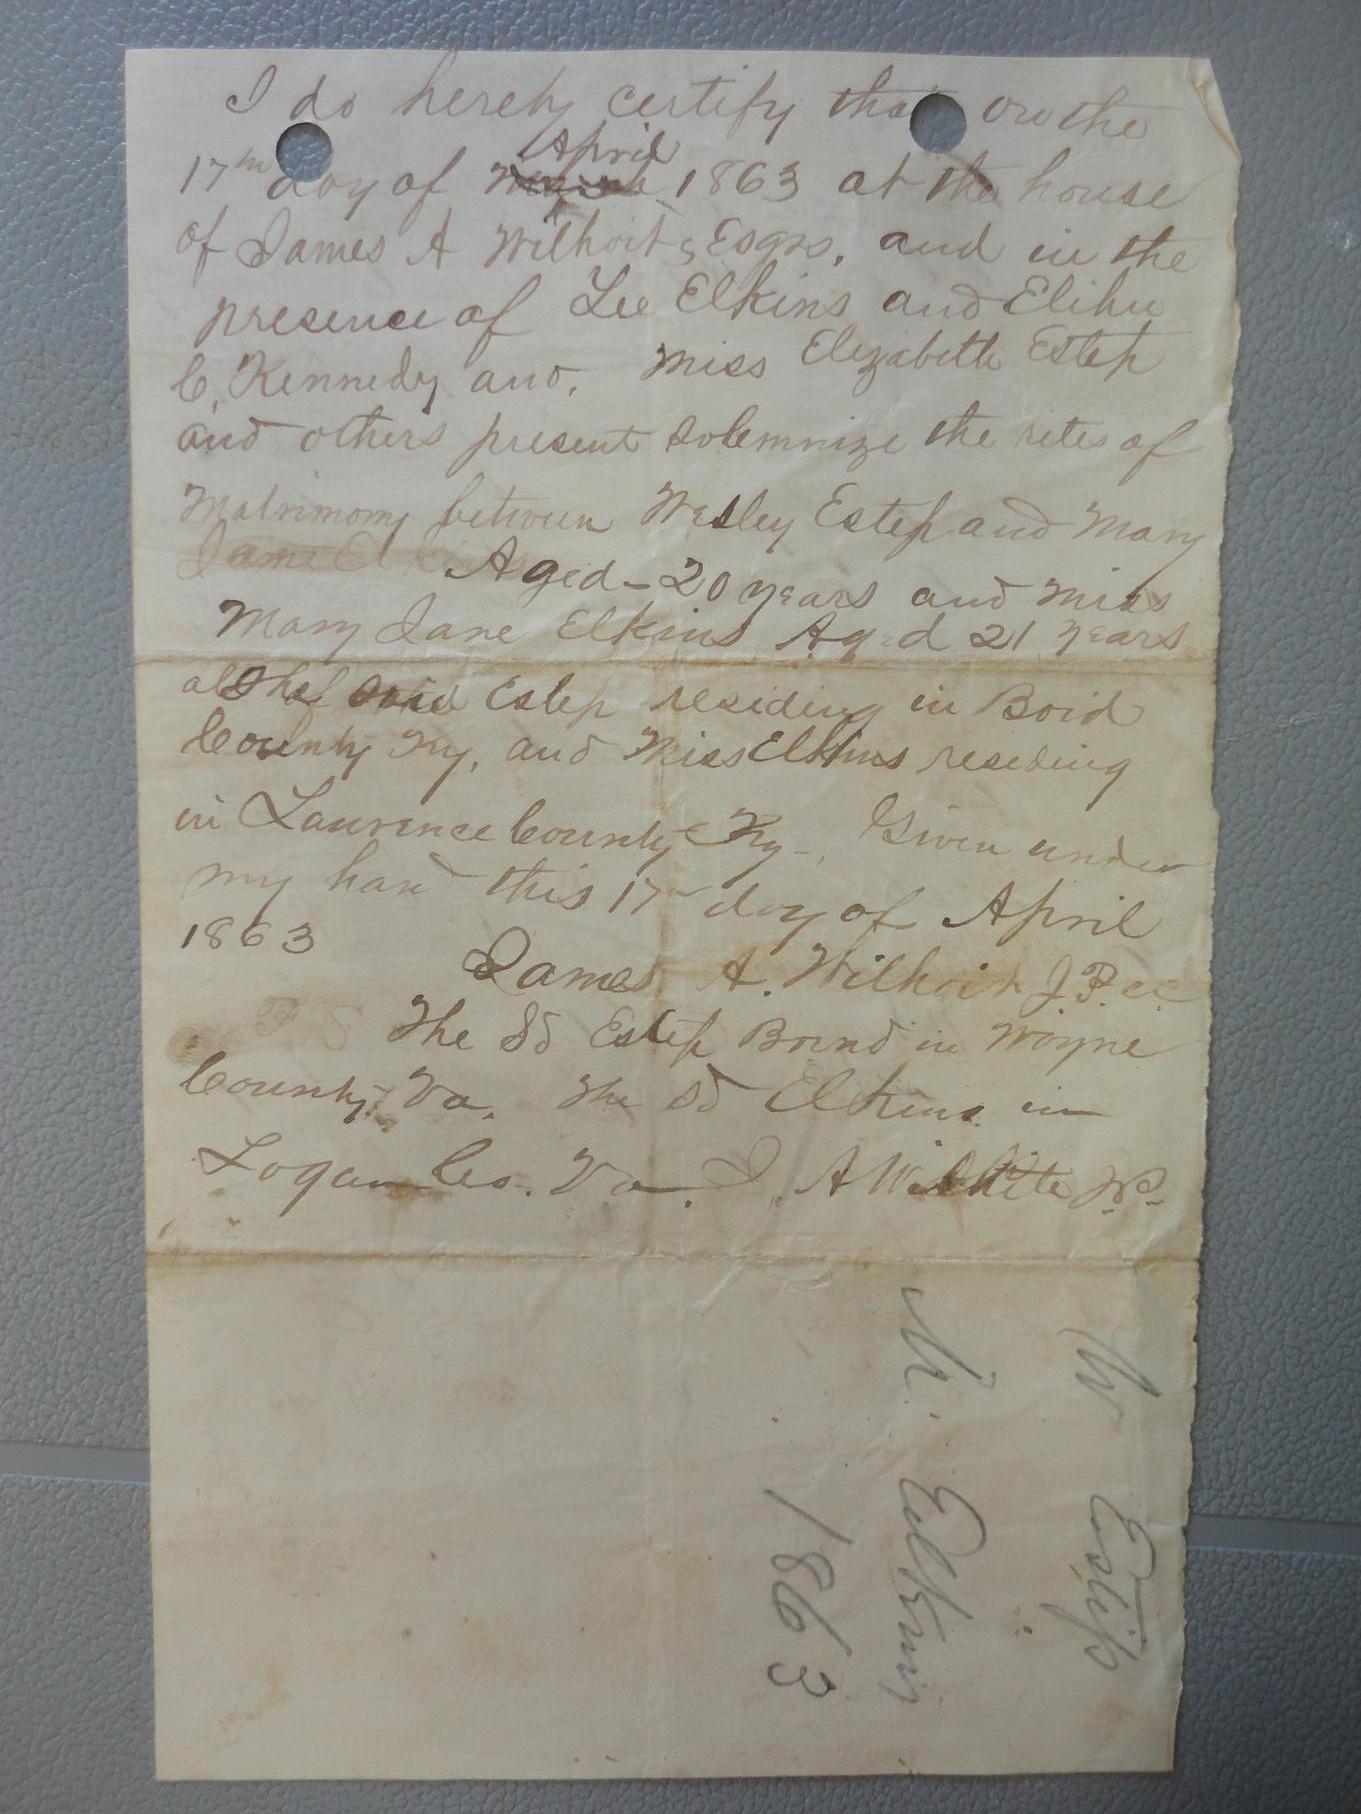 I do hereby certify that on the
April
17th day of March 1863 at the house
of James A Wilhoit, Esqrs, and in the
presence of Lee Elkins and Elihu
C, Kennedy and, Miss Elizabeth Estep
and others present solemnize the rites of
Matrimony between Wesley Estep and Mary
Jane Elkins Aged - 20 years and Miss
Mary Jane Elkins Aged 21 years
said Estep residing in Boid
County Ky, and Miss Elkins residing
in Lawrence County Ky -, Given under
my hand this 17 day of April
1863
James A. Wilhoit J.P. CC
P S The Sd Estep Bornd in Wayne
County Va. The Sd Elkins in
Logan Co. Va. J. A Wilhite J.P.
W Estip
M. Edkins
1863